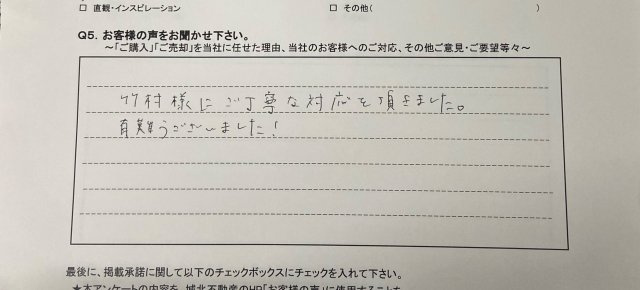 □ 直観・インスピレーション　□ その他(　)
Q5. お客様の声をお聞かせ下さい。
～「ご購入」「ご売却」を当社に任せた理由、当社のお客様へのご対応、その他ご意見・ご要望等々～
竹村様にご丁寧な対応を頂きました。
有難うございました!
最後に、掲載承諾に関して以下のチェックボックスにチェックを入れて下さい。
★本アンケートの内容を、城北不動産のHP「お客様の声」に使用することを